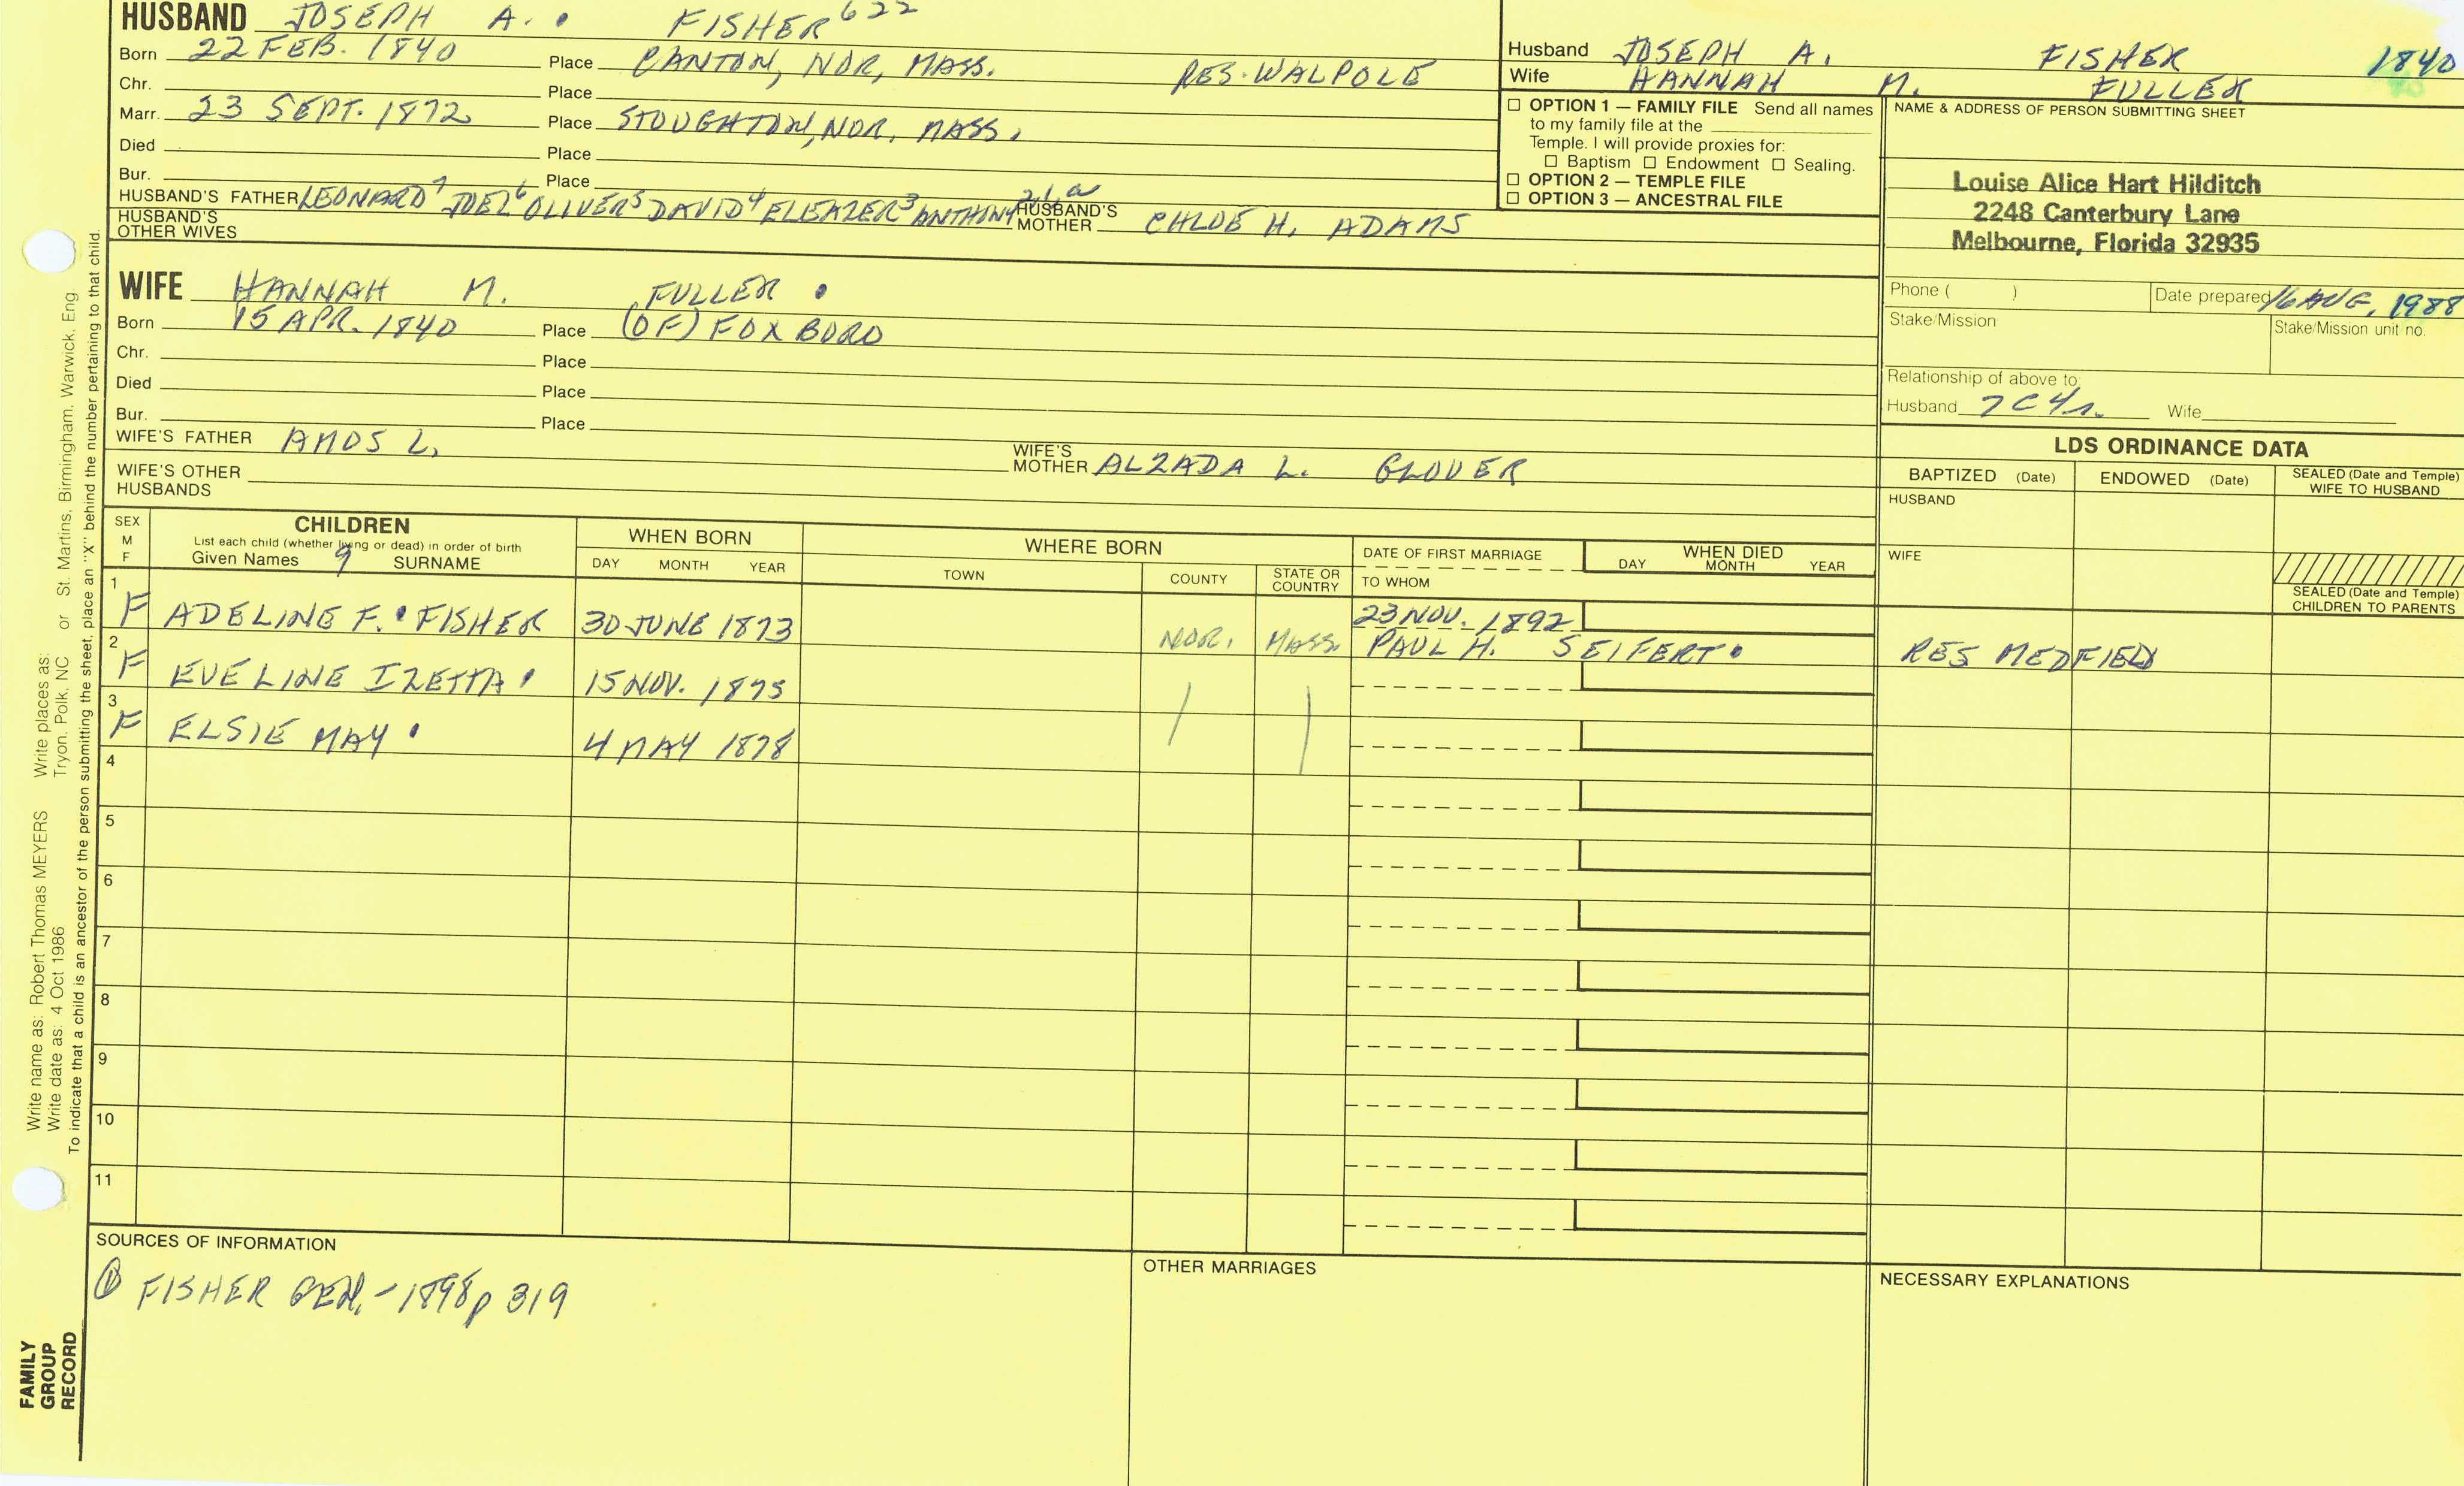 HUSBAND JOSEPH A. FISHER 622
Born 22 FEB. 1840 Place CANTON, NOR, MASS. RES. WALPOLE
Chr. Place
Marr. 23 SEPT. 1872 Place STOUGHTON, NOR, MASS.
Died Place
Bur. Place
HUSBAND'S FATHER LEONARD7 JOEL6 OLIVER5 DAVID4 ELEAZER3 ANTHONY2,1,a HUSBAND'S MOTHER CHLOE H. ADAMS
HUSBAND'S OTHER WIVES
Husband JOSEPH A. FISHER 1840
Wife HANNAH M. FULLER
☐ OPTION 1 — FAMILY FILE Send all names
to my family file at the
Temple. I will provide proxies for:
☐ Baptism ☐ Endowment ☐ Sealing.
☐ OPTION 2 — TEMPLE FILE
☐ OPTION 3 — ANCESTRAL FILE
NAME & ADDRESS OF PERSON SUBMITTING SHEET
Louise Alice Hart Hilditch
2248 Canterbury Lane
Melbourne, Florida 32935
Phone ( ) Date prepared 16 AUG, 1988
Stake/Mission Stake/Mission unit no.
Relationship of above to:
Husband 7C4r. Wife
WIFE HANNAH M. FULLER
Born 15 APR. 1840 Place (OF) FOXBORO
Chr. Place
Died Place
Bur. Place
WIFE'S FATHER AMOS L. WIFE'S MOTHER ALZADA L. GLOVER
WIFE'S OTHER HUSBANDS
LDS ORDINANCE DATA
BAPTIZED (Date) ENDOWED (Date) SEALED (Date and Temple) WIFE TO HUSBAND
HUSBAND
WIFE
SEALED (Date and Temple) CHILDREN TO PARENTS
SEX M F
CHILDREN
List each child (whether living or dead) in order of birth
Given Names 9 SURNAME
WHEN BORN
DAY MONTH YEAR
WHERE BORN
TOWN COUNTY STATE OR COUNTRY
DATE OF FIRST MARRIAGE
TO WHOM
WHEN DIED
DAY MONTH YEAR
1 F ADELINE F. FISHER 30 JUNE 1873 NOR. MASS. 23 NOV. 1892
PAUL H. SEIFERT RES MEDFIELD
2 F EVELINE IZETTA 15 NOV. 1875
3 F ELSIE MAY 4 MAY 1878
4
5
6
7
8
9
10
11
SOURCES OF INFORMATION
① FISHER GEN. - 1898 p 319
OTHER MARRIAGES
NECESSARY EXPLANATIONS
Write name as: Robert Thomas MEYERS Write places as: St. Martins, Birmingham, Warwick, Eng
Write date as: 4 Oct 1986 Tryon, Polk, NC or
To indicate that a child is an ancestor of the person submitting the sheet, place an "X" behind the number pertaining to that child.
FAMILY
GROUP
RECORD